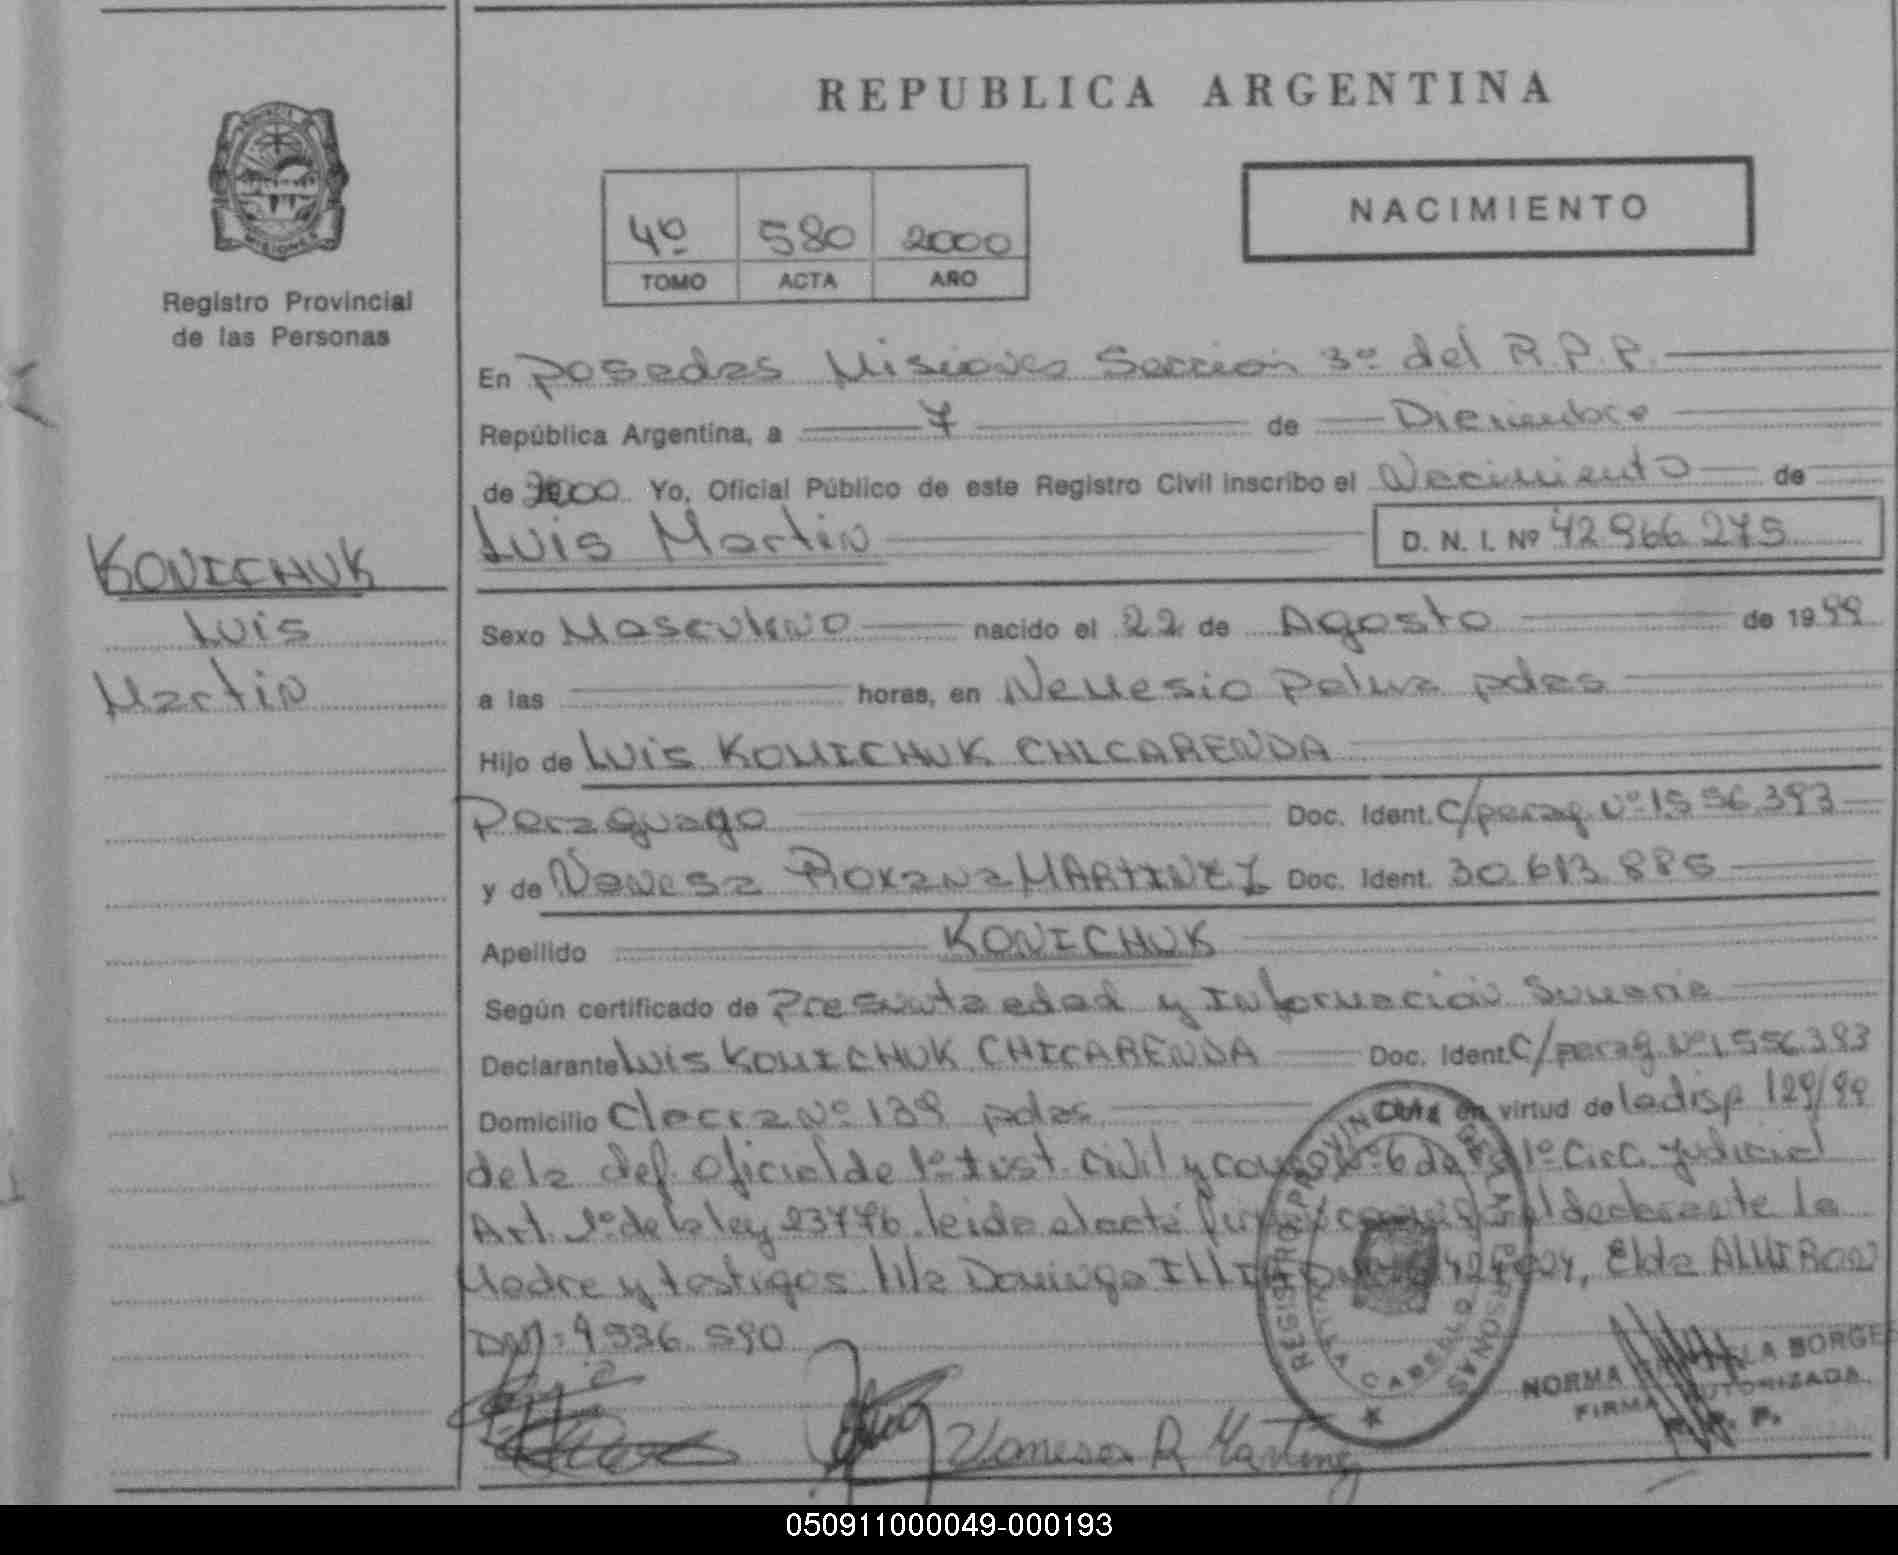 REPUBLICA ARGENTINA
MISIONES
Registro Provincial
de las Personas
4º 580 2000
TOMO ACTA AÑO
NACIMIENTO
En Posadas Misiones Sección 3º del R.P.P.
República Argentina, a 7 de Diciembre
de 2000 Yo, Oficial Público de este Registro Civil inscribo el Nacimiento de
Luis Martin D. N. I. Nº 42.966.275
KONICHUK
Luis
Martin
Sexo Masculino nacido el 22 de Agosto de 1999
a las horas, en Nemesio Palma pdas
Hijo de Luis KONICHUK CHICARENDA
Paraguayo Doc. Ident. C/parag. Nº 1.556.393
y de Vanesa Roxana MARTINEZ Doc. Ident. 30.613.885
Apellido KONICHUK
Según certificado de Presunta edad y Información Sumaria
Declarante Luis KONICHUK CHICARENDA Doc. Ident. C/parag. Nº 1.556.393
Domicilio Chacra Nº 139 pdas en virtud de la disp 129/99
de la def. oficial de 1º Inst. Civil y Nº 6 de la 1º Circ. Judicial
Art. 1º de la ley 23776 leida el acta el declarante la
Madre y testigos Domingo Elda ALMIRON
DNI: 4.536.590
REGISTRO PROVINCIAL DE LAS PERSONAS
CABELLO
Vanesa R Martinez
NORMA BORGE
FIRMA AUTORIZADA
R. P. P.
050911000049-000193